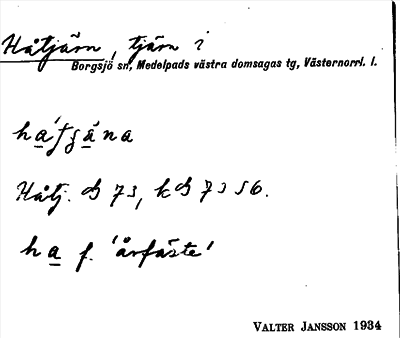 Håtjärn, tjärn i
Borgsjö sn, Medelpads västra domsagas tg, Västernorrl. l.
ha̲'tʒä̲na
Håtj. GS 73, kGS 73 S6.
ha̲ f. 'årfäste'
VALTER JANSSON 1934